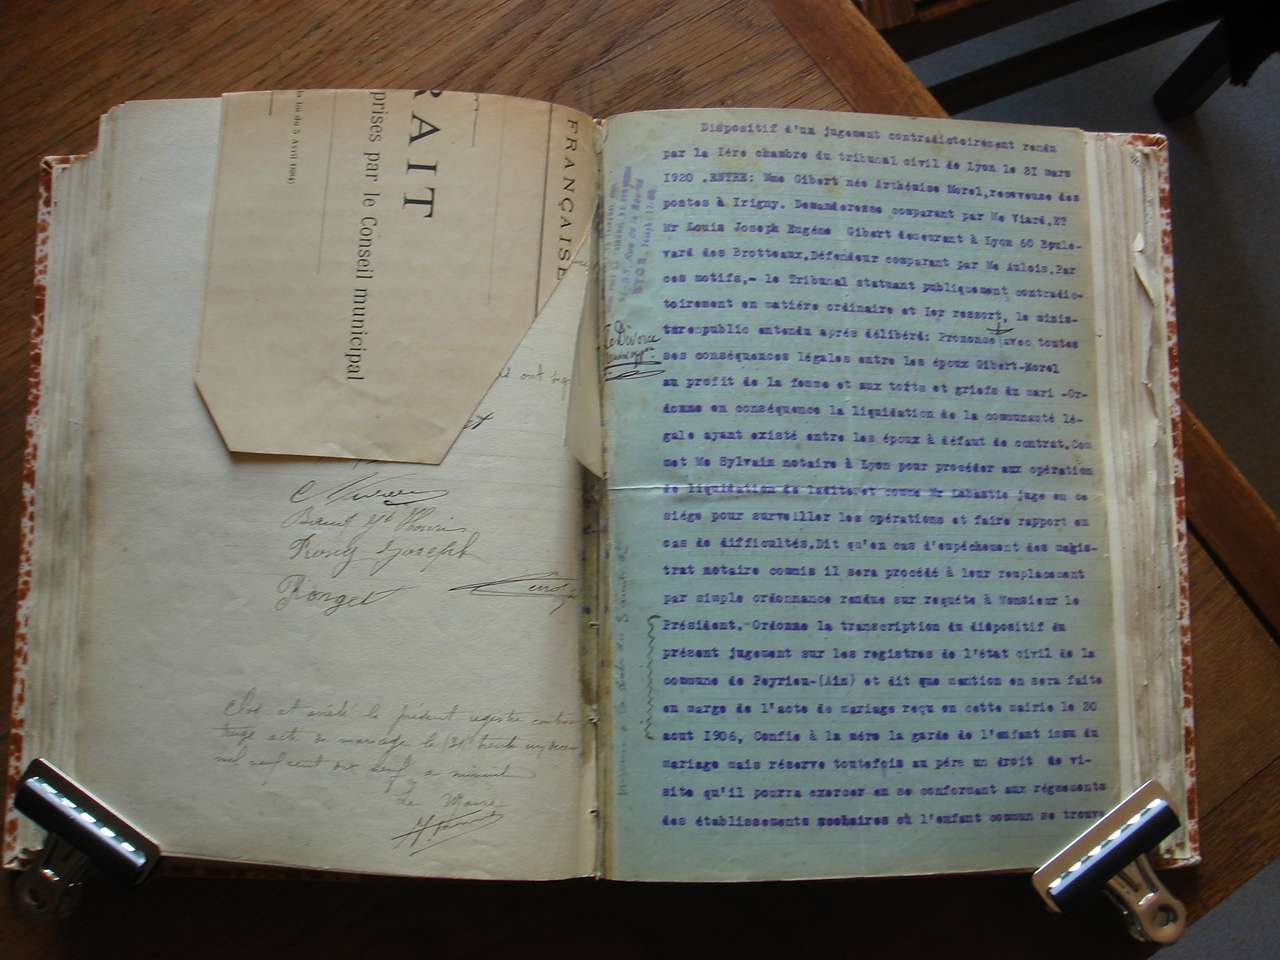 RAIT
prises par le Conseil municipal
la loi du 5 Avril 1884)
FRANÇAISE
ont
Baud
Joseph
Ronget
Clos et arrêté le présent registre
acte de mariage le (31) trente
mil neuf cent dix neuf à minuit
Le Maire
Le Divorce
Dispositif d'un jugement contradictoirement rendu
par la Ière chambre du tribunal civil de Lyon le 31 mars
1920 .ENTRE: Mme Gibert née Arthémise Morel,receveuse des
postes à Irigny. Demanderesse comparant par Me Viard.ET
Mr Louis Joseph Eugéne Gibert demeurant à Lyon 60 Boule-
vard des Brotteaux.Défendeur comparant par Me Aulois.Par
ces motifs,- le Tribunal statuant publiquement contradic-
toirement en matiére ordinaire et Ier ressort, le minis-
tére public entendu aprés délibéré: Prononce avec toutes
ses conséquences légales entre les époux Gibert-Morel
au profit de la femme et aux torts et griefs du mari -Or-
donne en conséquence la liquidation de la communauté lé-
gale ayant existé entre les époux à défaut de contrat.Com
met Me Sylvain notaire à Lyon pour procéder aux opération
de liquidation de ladite.et comme Mr Labastie juge en ce
siége pour surveiller les opérations et faire rapport en
cas de difficultés.Dit qu'en cas d'empéchement des magis-
trat notaire commis il sera procédé à leur remplacement
par simple ordonnance rendue sur requéte à Monsieur le
Président.-Ordonne la transcription du dispositif du
présent jugement sur les registres de l'état civil de la
commune de Peyrieu-(Ain) et dit que mention en sera faite
en marge de l'acte de mariage reçu en cette mairie le 20
aout 1906, Confie à la mére la garde de l'enfant issu du
mariage mais réserve toutefois au pére un droit de vi-
site qu'il pourra exercer en se conformant aux réglements
des établissements scolaires où l'enfant commun se trouve